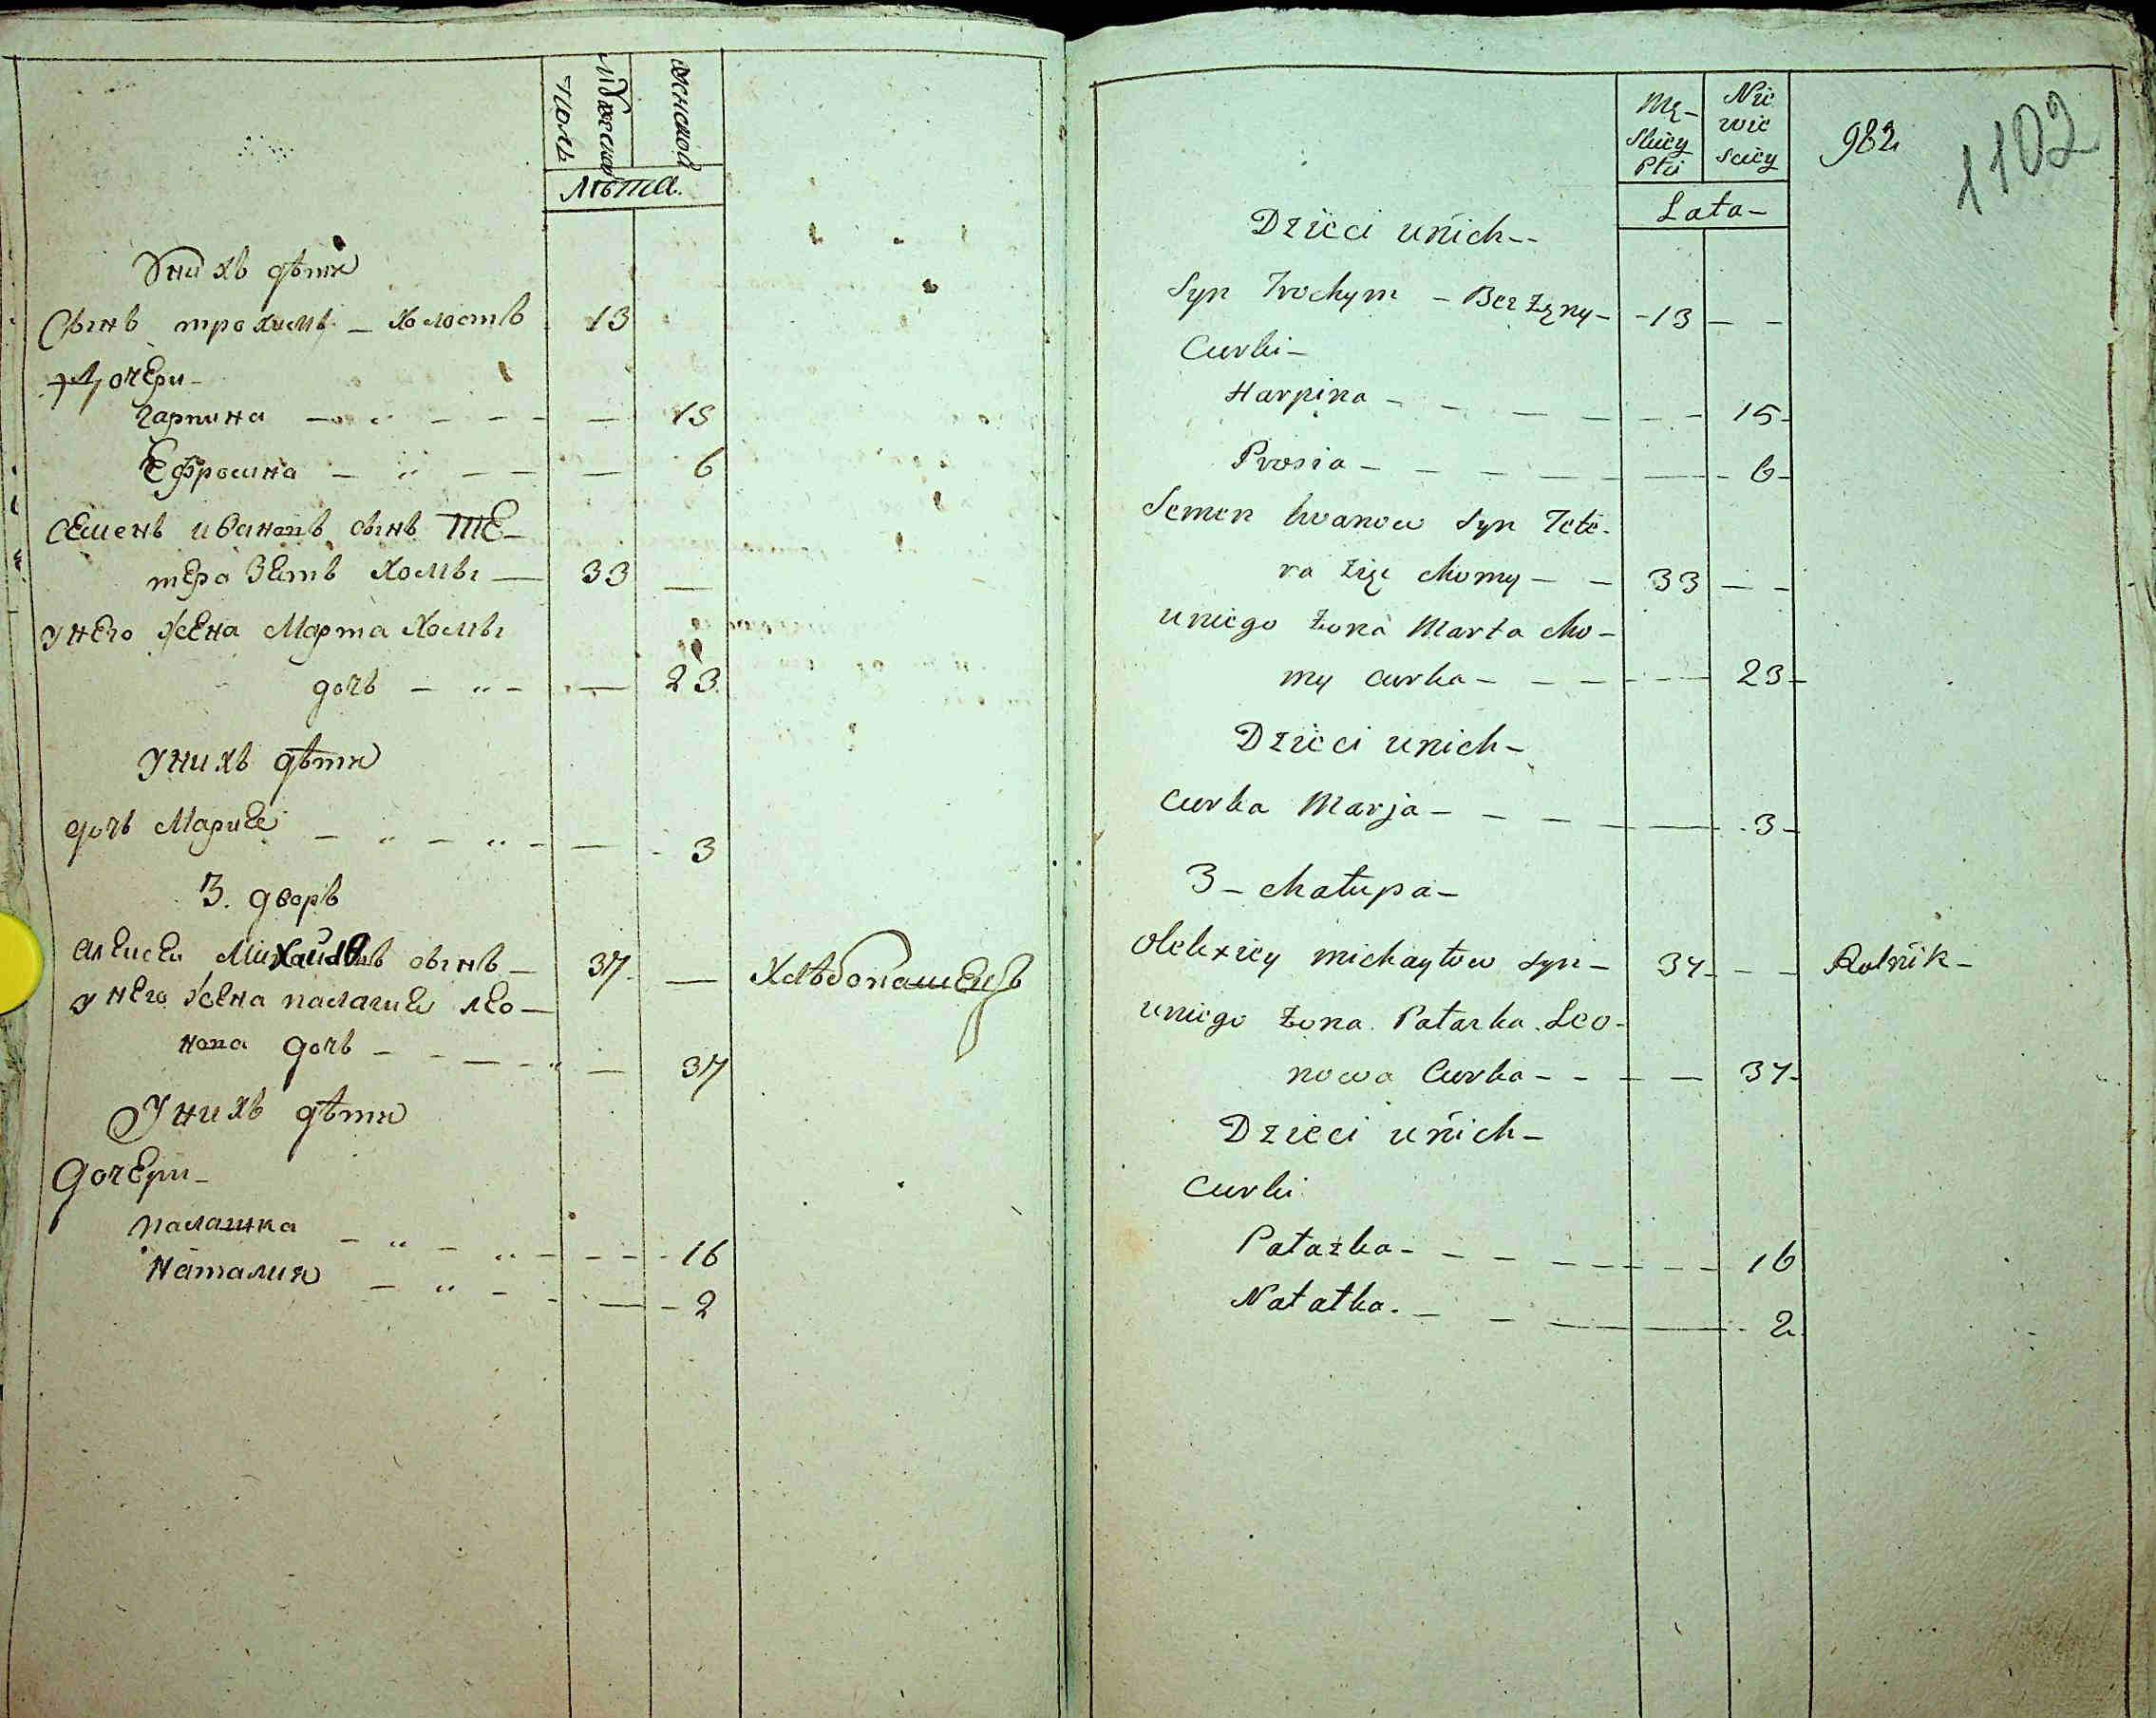 мужеска
полъ
женской
Лѣта.
У нихъ дѣти
Сынъ трохимъ - холостъ 13
Дочери -
гарпина - - - - 15
Ефросина - - - 6
Семенъ ивановъ сынъ ТЕ-
тера Зеть хомы - 33 -
у него жена Марта хомы
дочь - - - 23
у нихъ дѣти
дочь Мария - - - - 3
3. дворъ
алексеи Михайловъ сынъ - 37 - хлѣбопашецъ
у него жена палагия лео-
нова дочь - - - - 37
У нихъ дѣти
Дочери -
палашка - - - - 16
Наталия - - - - 2
Mę-
skiey
Płci
Nie
wie
sciey
982
1102
Lata -
Dzieci unich --
Syn Trochym - Bez żęny - -13 - -
Curki -
Harpina - - - - - 15-
Prosia - - - - - 6-
Semen Iwanow Syn Tete-
ra Zięc chomy - - 33 - -
uniego żona Marta cho-
my curka - - - - 23-
Dzieci unich -
Curka Marja - - - - 3-
3 - chałupa -
Olekxiey michayłow syn - 37 - - Rolnik -
uniego żona. Pałaska. Leo-
nowa Curka - - - - 37-
Dzieci unich -
Curki
Pałazka - - - - 16
Natałka. - - - - 2